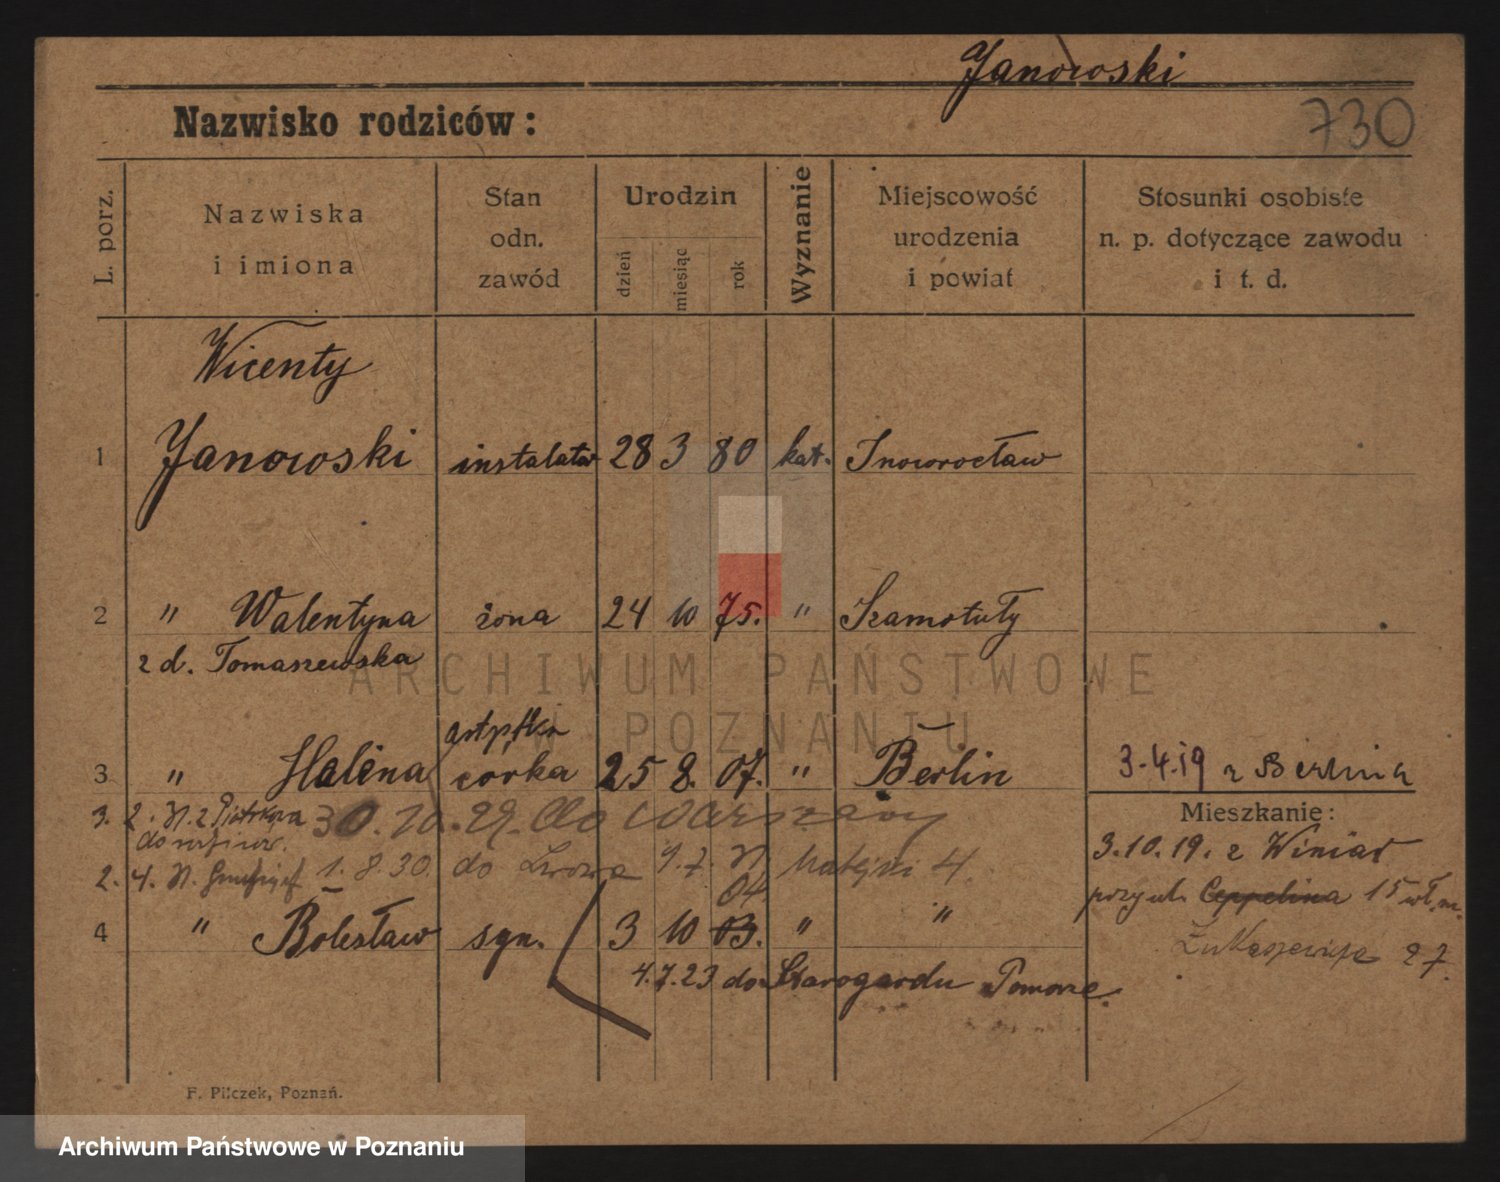 Janowski
Nazwisko rodziców:
730
L. porz.
Nazwiska
i imiona
Stan
odn.
zawód
Urodzin
dzień
miesiąc
rok
Wyznanie
Miejscowość
urodzenia
i powiat
Stosunki osobiste
n. p. dotyczące zawodu
i t. d.
Wicenty
1 Janowski instalator 28 3 80 kat. Inowrocław
2 " Walentyna żona 24 10 75. " Szamotuły
z d. Tomaszewska
3 " Halina córka 25 8. 07. " Berlin 3.4.19 z Berlina
3. 2. N. z Piotrkowa 30.10.29. do Warszawy
Mieszkanie:
3.10.19. z Winiar
2. 4. N. 1.8.30. do Lwowa 9.7. N. Matejki 4.
04.
przy ul. Ceppelina 15
4 " Bolesław syn. 3 10 03. " "
Łukaszewicza 27.
4.7.23 do Starogardu Pomorze.
F. Pilczek, Poznań.
ARCHIWUM PAŃSTWOWE
W POZNANIU
Archiwum Państwowe w Poznaniu